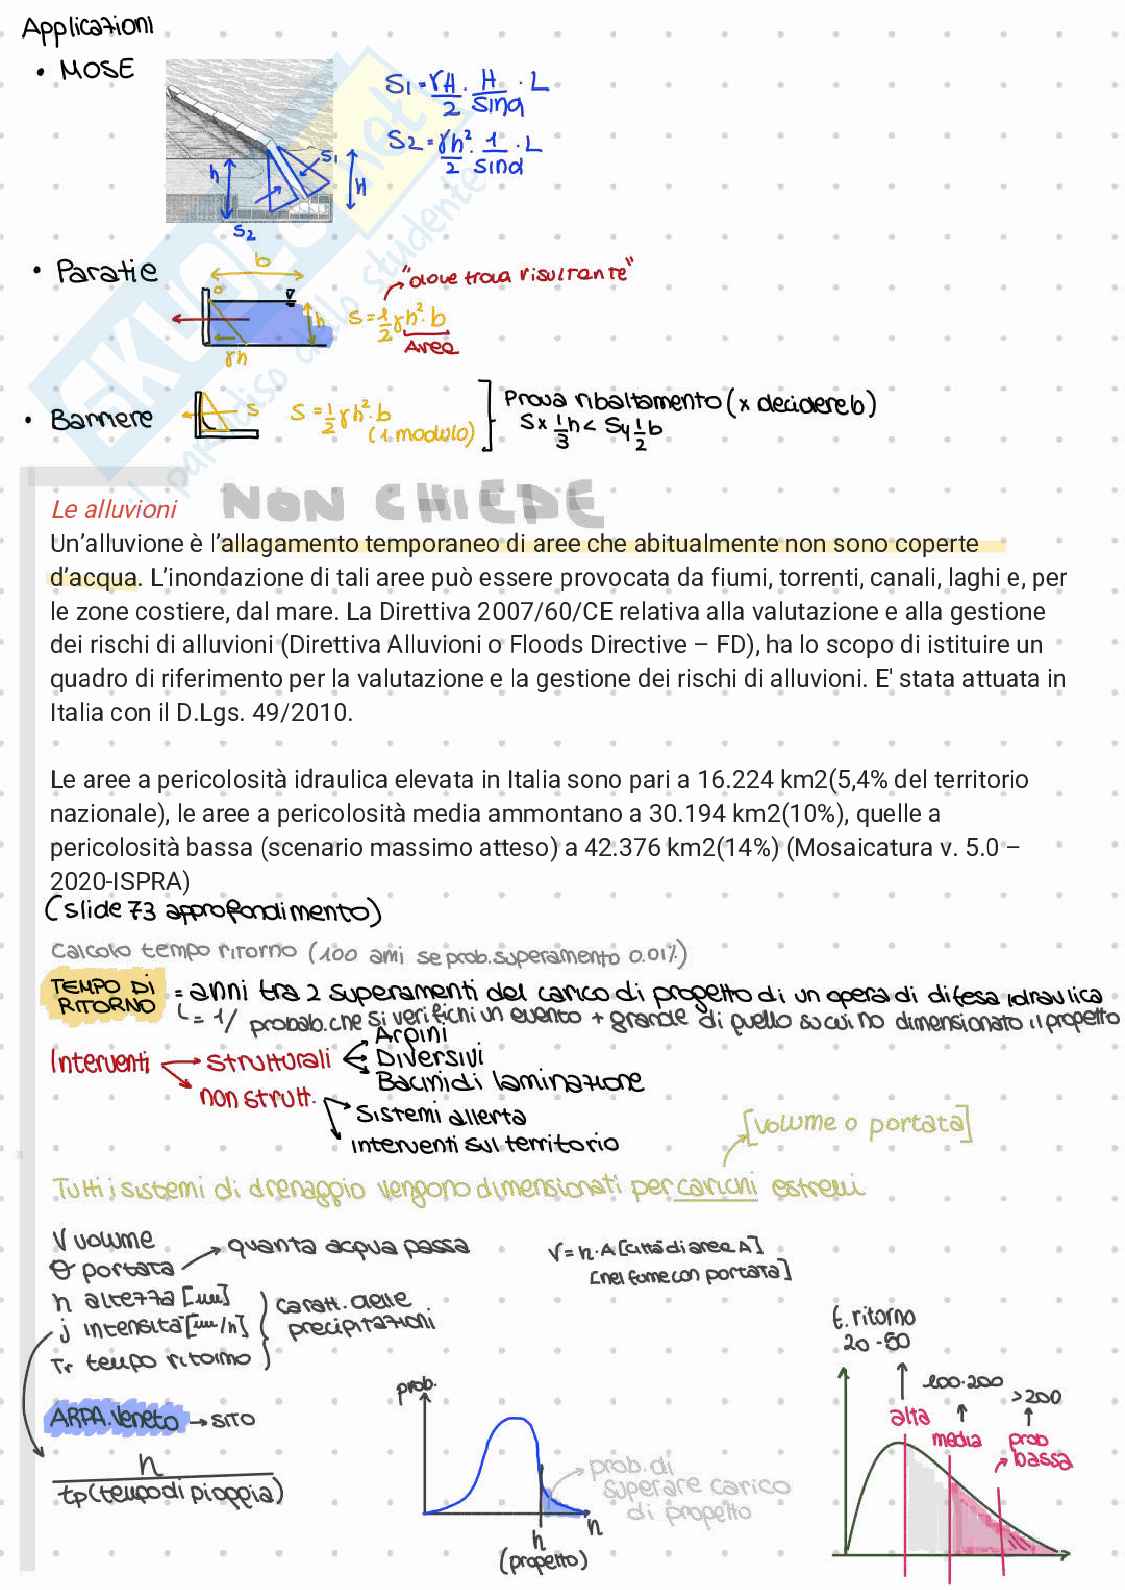 Applicazioni
• MOSE
S1 = γH/2 · H/sinα · L
S2 = γh²/2 · 1/sinα · L
h
S1
H
S2
• Paratie
b
"dove trova risultante"
S = 1/2 γh² · b
h
Area
γh
• Barriere
S
S = 1/2 γh² · b
(1 modulo)
Prova ribaltamento (x decidere b)
S x 1/3 h < Sy 1/2 b
SKUOLA.net
il paradiso dello studente
NON CHIEDE
Le alluvioni
Un'alluvione è l'allagamento temporaneo di aree che abitualmente non sono coperte
d'acqua. L'inondazione di tali aree può essere provocata da fiumi, torrenti, canali, laghi e, per
le zone costiere, dal mare. La Direttiva 2007/60/CE relativa alla valutazione e alla gestione
dei rischi di alluvioni (Direttiva Alluvioni o Floods Directive – FD), ha lo scopo di istituire un
quadro di riferimento per la valutazione e la gestione dei rischi di alluvioni. E' stata attuata in
Italia con il D.Lgs. 49/2010.
Le aree a pericolosità idraulica elevata in Italia sono pari a 16.224 km2(5,4% del territorio
nazionale), le aree a pericolosità media ammontano a 30.194 km2(10%), quelle a
pericolosità bassa (scenario massimo atteso) a 42.376 km2(14%) (Mosaicatura v. 5.0 –
2020-ISPRA)
(slide 73 approfondimento)
Calcolo tempo ritorno (100 anni se prob. superamento 0.01%)
TEMPO DI RITORNO = anni tra 2 superamenti del carico di progetto di un opera di difesa idraulica
= 1/ probab. che si verifichi un evento + grande di quello su cui ho dimensionato il progetto
Interventi → strutturali
Argini
Diversivi
Bacini di laminazione
non strutt.
Sistemi allerta
interventi sul territorio
[volume o portata]
Tutti i sistemi di drenaggio vengono dimensionati per carichi estremi
V volume
Q portata → quanta acqua passa
V = h · A [città di area A]
[nel fiume con portata]
h altezza [mm]
j intensità [mm/h]
Tr tempo ritorno
caratt. delle
precipitazioni
ARPA.Veneto → sito
h
tp (tempo di pioggia)
prob.
prob. di
superare carico
di progetto
h
h
(progetto)
t. ritorno
20-50
100-200
>200
alta
media
prob
bassa